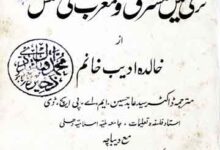 ترکی میں مشرق و مغرب کی کشمکش
از
خالدہ ادیب خانم
مترجمہ ڈاکٹر سید عابد حسین۔ ایم۔ اے۔ پی ایچ۔ ڈی
استاد فلسفہ و تعلیمات، جامعہ ملیہ اسلامیہ دہلی
مع دیباچہ